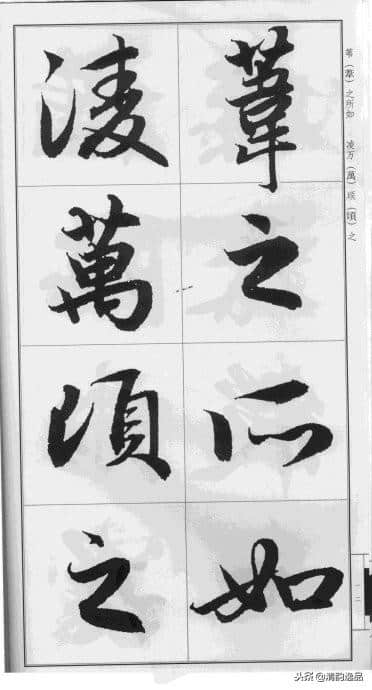 葦之所如
淩萬頃之
苇（葦）之所如 凌万（萬）顷（頃）之
一二
头条@清韵逸品